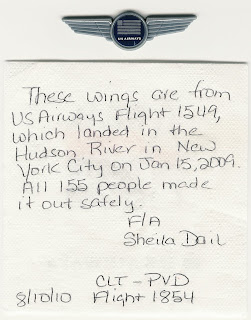 US AIRWAYS
These wings are from
US Airways Flight 1549,
which landed in the
Hudson River in New
York City on Jan 15, 2009.
All 155 people made
it out safely.
F/A
Sheila Dail
CLT - PVD
8/10/10 Flight 1854